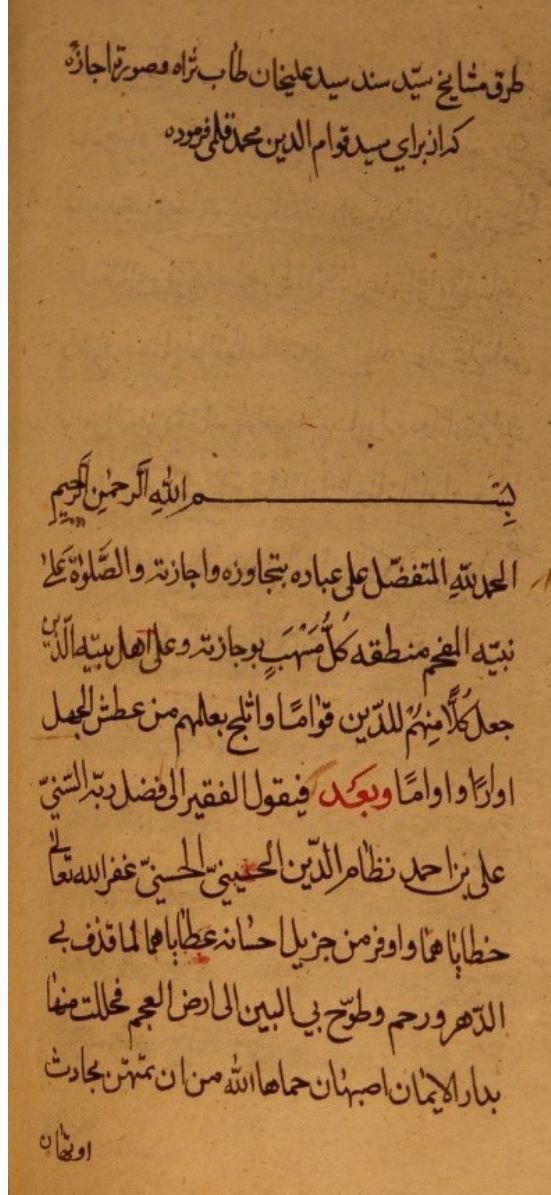 طرق مشایخ سیّد سند سید علیخان طاب ثراه وصورة اجازهٔ
که از برای سید قوام الدین محمد قلمی فرموده
بِسْــــــــــــــمِ اللّٰهِ الَّرحمٰنِ الَّرحیمِ
الحمد للّهِ المتفضّل علی عباده بتجاوزه واجازته والصَّلوٰة عَلیٰ
نبیّه المفحم منطقه کُلُّ مَسْهَبٍ بوجازته وعلی اهل بیته الّذین
جعل کُلًّا مِنهُمْ للدّین قوٰامًا واثلج بعلمهم من عطش الجهل
اوارًا واوامًا وبعد فیقول الفقیر الی فضل ربّه السّنیّ
علی بن احمد نظام الدّین الحسینیّ الحسنیّ غفر الله تعٰالیٰ
خطایاهما واوفر من جزیل احسٰانه عطٰایاهما لما قذف بی
الدّهر ورحم وطوّح بی البین الی ارض العجم فحللت منهٰا
بدار الایمٰان اصبهٰان حماها الله من ان تمتهن بحادث